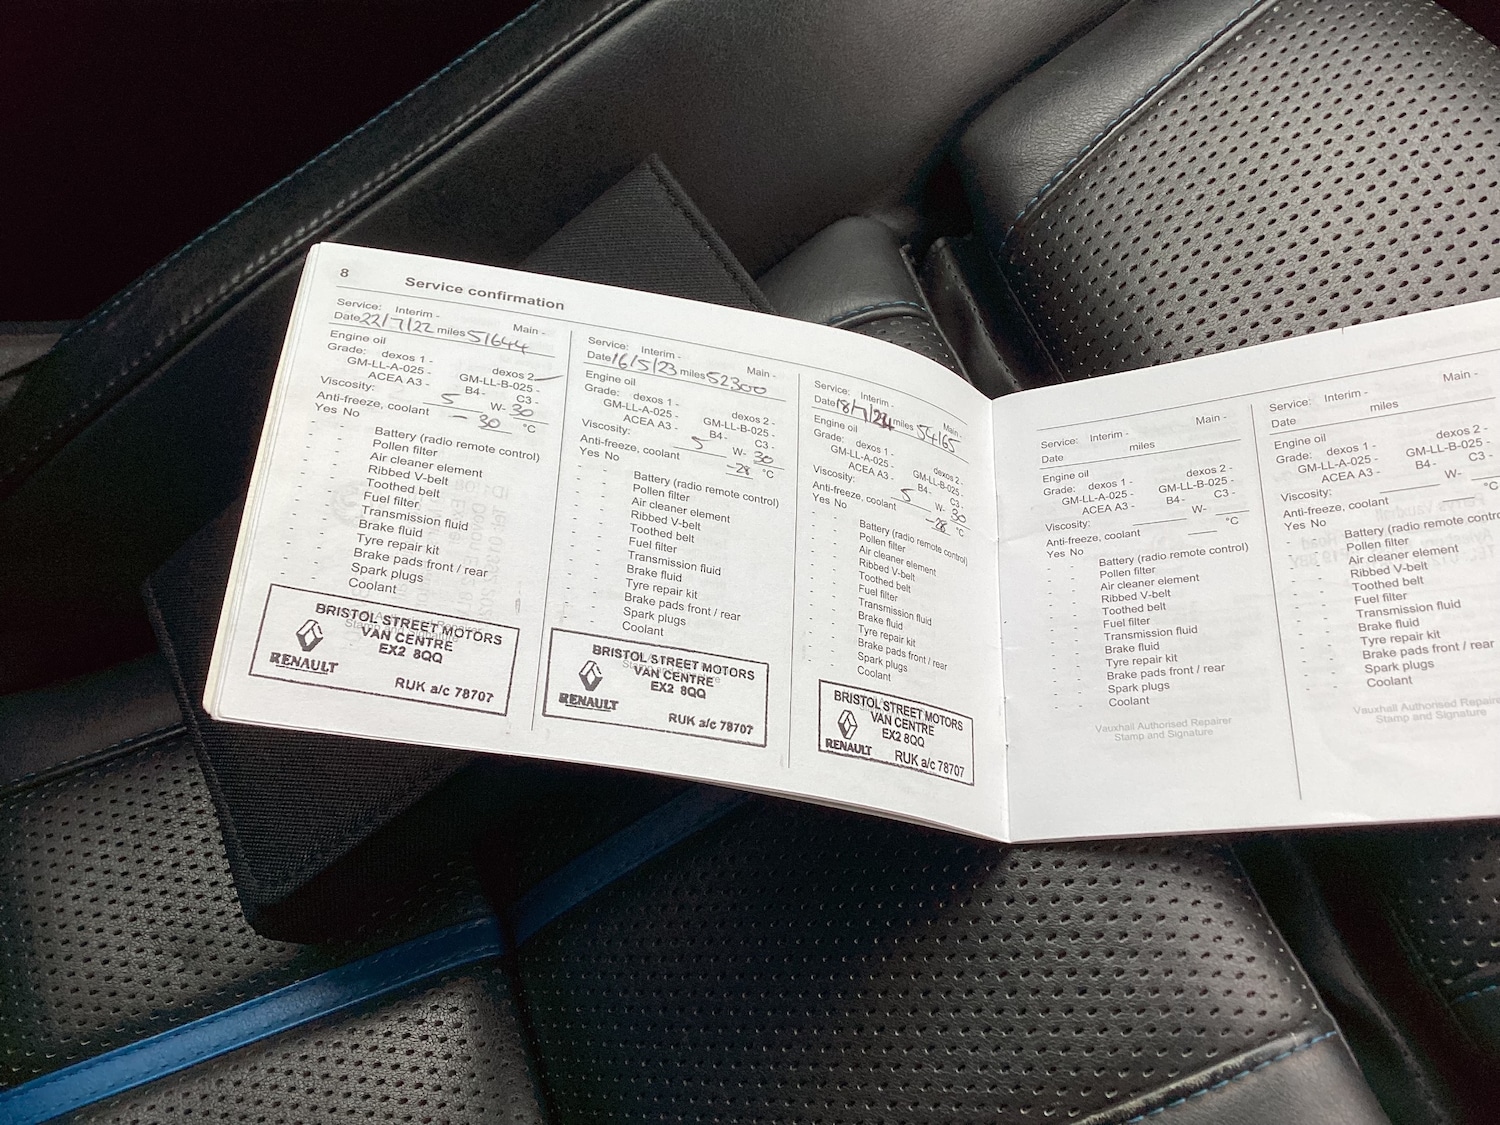 8
Service confirmation
Service: Interim - Main -
Date 22/7/22 miles 51644
Engine oil
Grade: dexos 1 - dexos 2 -
GM-LL-A-025 - GM-LL-B-025 -
ACEA A3 - B4 - C3 -
Viscosity: 5 W- 30
Anti-freeze, coolant - 30 °C
Yes No
- - Battery (radio remote control)
- - Pollen filter
- - Air cleaner element
- - Ribbed V-belt
- - Toothed belt
- - Fuel filter
- - Transmission fluid
- - Brake fluid
- - Tyre repair kit
- - Brake pads front / rear
- - Spark plugs
- - Coolant
BRISTOL STREET MOTORS
VAN CENTRE
EX2 8QQ
RENAULT
RUK a/c 78707
Service: Interim - Main -
Date 16/5/23 miles 52300
Engine oil
Grade: dexos 1 - dexos 2 -
GM-LL-A-025 - GM-LL-B-025 -
ACEA A3 - B4 - C3 -
Viscosity: 5 W- 30
Anti-freeze, coolant -28 °C
Yes No
- - Battery (radio remote control)
- - Pollen filter
- - Air cleaner element
- - Ribbed V-belt
- - Toothed belt
- - Fuel filter
- - Transmission fluid
- - Brake fluid
- - Tyre repair kit
- - Brake pads front / rear
- - Spark plugs
- - Coolant
BRISTOL STREET MOTORS
VAN CENTRE
EX2 8QQ
RENAULT
RUK a/c 78707
Service: Interim - Main -
Date miles 54165
Engine oil
Grade: dexos 1 - dexos 2 -
GM-LL-A-025 - GM-LL-B-025 -
ACEA A3 - B4 - C3 -
Viscosity: 5 W- 30
Anti-freeze, coolant -28 °C
Yes No
- - Battery (radio remote control)
- - Pollen filter
- - Air cleaner element
- - Ribbed V-belt
- - Toothed belt
- - Fuel filter
- - Transmission fluid
- - Brake fluid
- - Tyre repair kit
- - Brake pads front / rear
- - Spark plugs
- - Coolant
BRISTOL STREET MOTORS
VAN CENTRE
EX2 8QQ
RENAULT
RUK a/c 78707
Service: Interim - Main -
Date miles
Engine oil
Grade: dexos 1 - dexos 2 -
GM-LL-A-025 - GM-LL-B-025 -
ACEA A3 - B4 - C3 -
Viscosity: W-
Anti-freeze, coolant °C
Yes No
- - Battery (radio remote control)
- - Pollen filter
- - Air cleaner element
- - Ribbed V-belt
- - Toothed belt
- - Fuel filter
- - Transmission fluid
- - Brake fluid
- - Tyre repair kit
- - Brake pads front / rear
- - Spark plugs
- - Coolant
Vauxhall Authorised Repairer
Stamp and Signature
Service: Interim - Main -
Date miles
Engine oil
Grade: dexos 1 - dexos 2 -
GM-LL-A-025 - GM-LL-B-025 -
ACEA A3 - B4 - C3 -
Viscosity: W-
Anti-freeze, coolant °C
Yes No
- - Battery (radio remote
- - Pollen filter
- - Air cleaner element
- - Ribbed V-belt
- - Toothed belt
- - Fuel filter
- - Transmission fluid
- - Brake fluid
- - Tyre repair kit
- - Brake pads front / rear
- - Spark plugs
- - Coolant
Vauxhall Authorised Repairer
Stamp and Signature